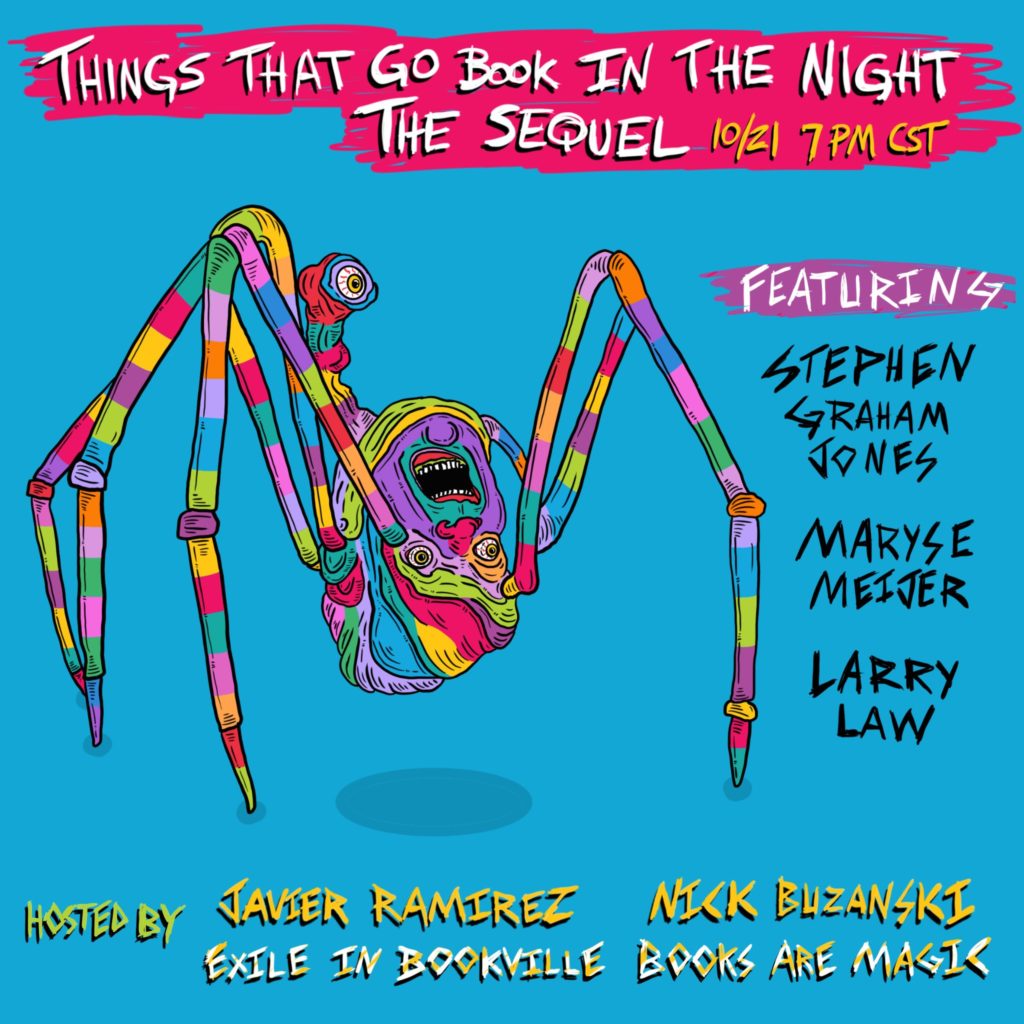 THINGS THAT GO BOOK IN THE NIGHT
THE SEQUEL 10/21 7 PM CST
FEATURING
STEPHEN
GRAHAM
JONES
MARYSE
MEIJER
LARRY
LAW
HOSTED BY
JAVIER RAMIREZ
EXILE IN BOOKVILLE
NICK BUZANSKI
BOOKS ARE MAGIC